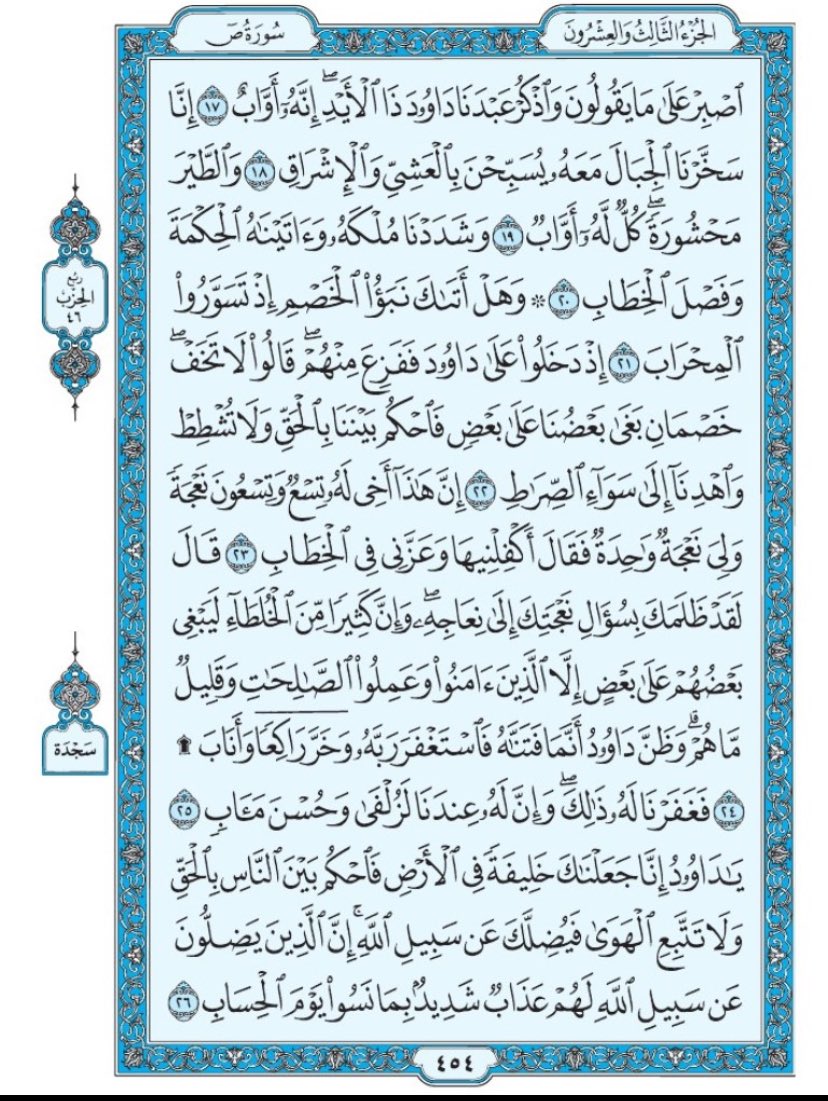 الجزء الثالث والعشرون
سورة ص
ٱصۡبِرۡ عَلَىٰ مَا يَقُولُونَ وَٱذۡكُرۡ عَبۡدَنَا دَاوُۥدَ ذَا ٱلۡأَيۡدِۖ إِنَّهُۥٓ أَوَّابٌ ١٧ إِنَّا
سَخَّرۡنَا ٱلۡجِبَالَ مَعَهُۥ يُسَبِّحۡنَ بِٱلۡعَشِيِّ وَٱلۡإِشۡرَاقِ ١٨ وَٱلطَّيۡرَ
مَحۡشُورَةٗۖ كُلّٞ لَّهُۥٓ أَوَّابٞ ١٩ وَشَدَدۡنَا مُلۡكَهُۥ وَءَاتَيۡنَٰهُ ٱلۡحِكۡمَةَ
وَفَصۡلَ ٱلۡخِطَابِ ٢٠ * وَهَلۡ أَتَىٰكَ نَبَؤُاْ ٱلۡخَصۡمِ إِذۡ تَسَوَّرُواْ
ٱلۡمِحۡرَابَ ٢١ إِذۡ دَخَلُواْ عَلَىٰ دَاوُۥدَ فَفَزِعَ مِنۡهُمۡۖ قَالُواْ لَا تَخَفۡۖ
خَصۡمَانِ بَغَىٰ بَعۡضُنَا عَلَىٰ بَعۡضٖ فَٱحۡكُم بَيۡنَنَا بِٱلۡحَقِّ وَلَا تُشۡطِطۡ
وَٱهۡدِنَآ إِلَىٰ سَوَآءِ ٱلصِّرَٰطِ ٢٢ إِنَّ هَٰذَآ أَخِي لَهُۥ تِسۡعٞ وَتِسۡعُونَ نَعۡجَةٗ
وَلِيَ نَعۡجَةٞ وَٰحِدَةٞ فَقَالَ أَكۡفِلۡنِيهَا وَعَزَّنِي فِي ٱلۡخِطَابِ ٢٣ قَالَ
لَقَدۡ ظَلَمَكَ بِسُؤَالِ نَعۡجَتِكَ إِلَىٰ نِعَاجِهِۦۖ وَإِنَّ كَثِيرٗا مِّنَ ٱلۡخُلَطَآءِ لَيَبۡغِي
بَعۡضُهُمۡ عَلَىٰ بَعۡضٍ إِلَّا ٱلَّذِينَ ءَامَنُواْ وَعَمِلُواْ ٱلصَّٰلِحَٰتِ وَقَلِيلٞ
مَّا هُمۡۗ وَظَنَّ دَاوُۥدُ أَنَّمَا فَتَنَّٰهُ فَٱسۡتَغۡفَرَ رَبَّهُۥ وَخَرَّۤ رَاكِعٗاۤ وَأَنَابَ ۩
٢٤ فَغَفَرۡنَا لَهُۥ ذَٰلِكَۖ وَإِنَّ لَهُۥ عِندَنَا لَزُلۡفَىٰ وَحُسۡنَ مَـَٔابٖ ٢٥
يَٰدَاوُۥدُ إِنَّا جَعَلۡنَٰكَ خَلِيفَةٗ فِي ٱلۡأَرۡضِ فَٱحۡكُم بَيۡنَ ٱلنَّاسِ بِٱلۡحَقِّ
وَلَا تَتَّبِعِ ٱلۡهَوَىٰ فَيُضِلَّكَ عَن سَبِيلِ ٱللَّهِۚ إِنَّ ٱلَّذِينَ يَضِلُّونَ
عَن سَبِيلِ ٱللَّهِ لَهُمۡ عَذَابٞ شَدِيدُۢ بِمَا نَسُواْ يَوۡمَ ٱلۡحِسَابِ ٢٦
ربع
الحزب
٤٦
سجدة
٤٥٤